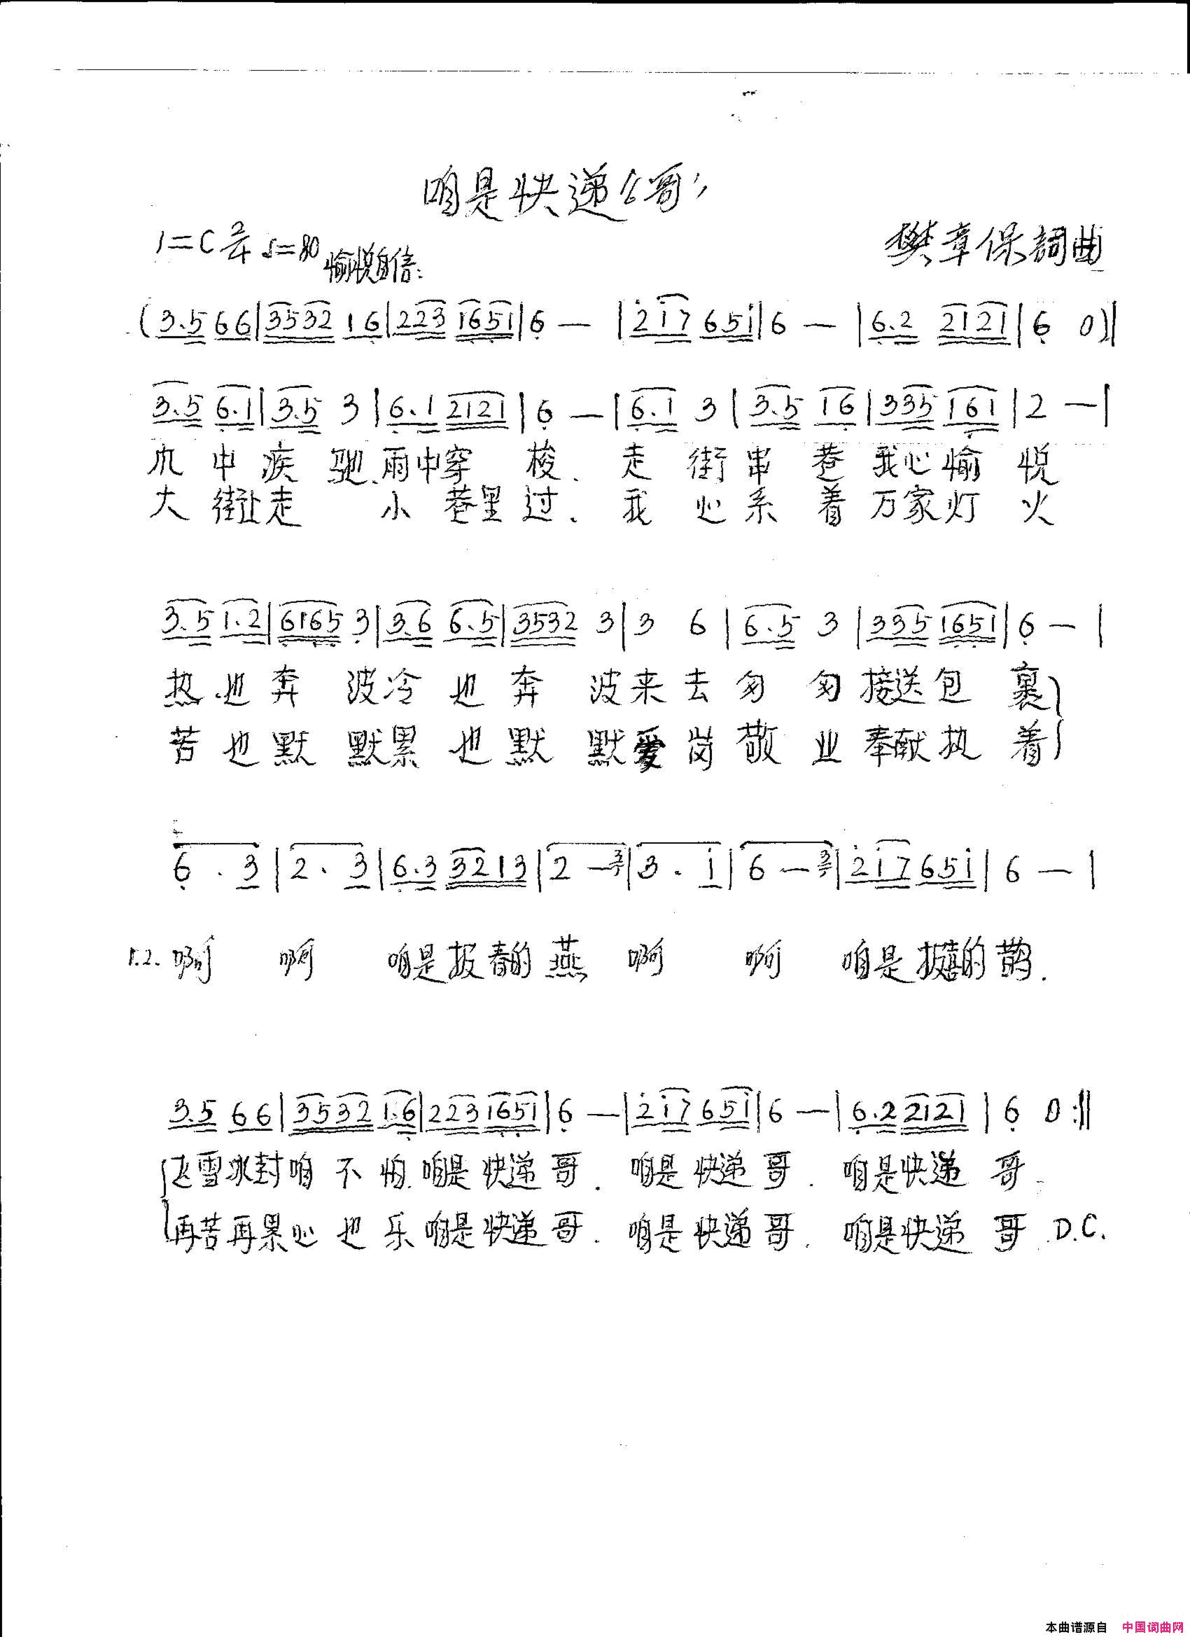 咱是快递《哥》
1=C 2/4 ♩=80 愉悦自信: 樊章保詞曲
(3.5 66|3532 16|223 1651|6 —|2i7 651|6 —|6.2 2121|6 0)|
3.5 6.1|3.5 3|6.1 2121|6 —|6.1 3|3.5 16|335 161|2 —|
风中疾驰、雨中穿梭、走街串巷我心愉悦
大街走 小巷里过、我心系着万家灯火
3.5 1.2|6165 3|3.6 6.5|3532 3|3 6|6.5 3|335 1651|6 —|
热也奔波冷也奔波来去匆匆接送包裹
苦也默默累也默默爱岗敬业奉献执着
6 . 3|2 . 3|6.3 3213|2 —|3 . i|6 —|2i7 651|6 —|
1.2. 啊 啊 咱是报春的燕 啊 啊 咱是报喜的鹊.
3.5 66|3532 1.6|223 1651|6 —|2i7 651|6 —|6.2 2121|6 0:||
飞雪冰封咱不怕.咱是快递哥.咱是快递哥.咱是快递哥.
再苦再累心也乐咱是快递哥.咱是快递哥.咱是快递哥.D.C.
本曲谱源自 中国词曲网